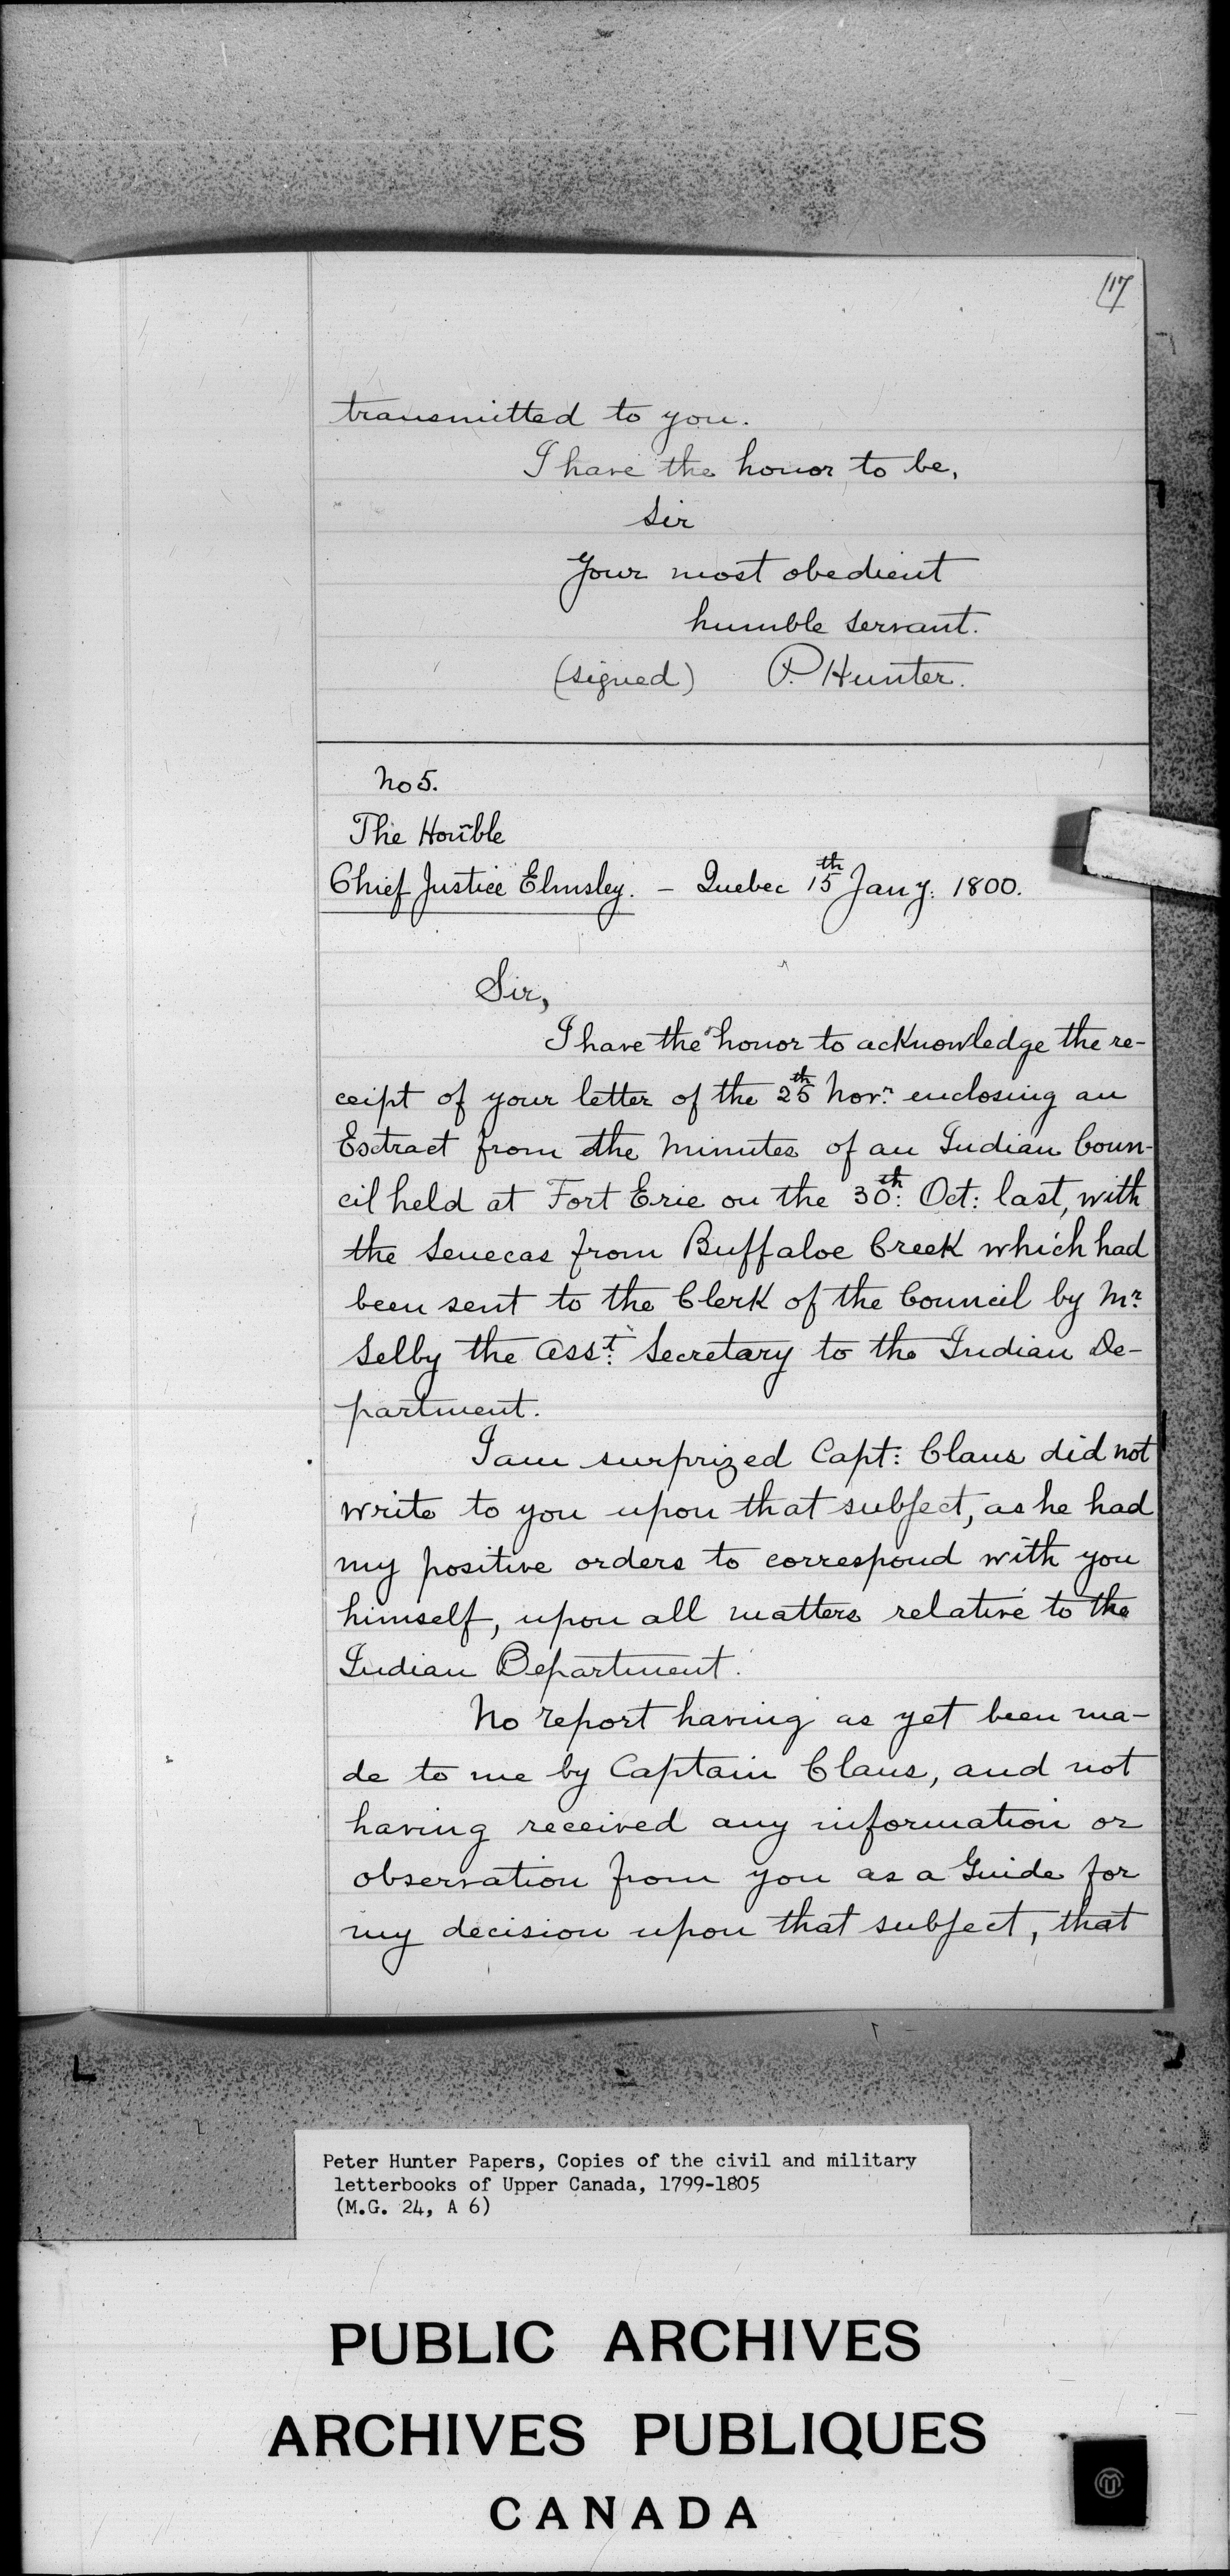 17
transmitted to you.
I have the honor to be,
Sir
Your most obedient
humble servant.
(signed) P. Hunter.
No 5.
The Hoñble
Chief Justice Elmsley. — Quebec 15th Jany. 1800.
Sir,
I have the honor to acknowledge the re-
ceipt of your letter of the 25th Novr. enclosing an
Extract from the Minutes of an Indian Coun-
cil held at Fort Erie on the 30th: Oct: last, with
the Senecas from Buffaloe Creek which had
been sent to the Clerk of the Council by Mr.
Selby the Asst: Secretary to the Indian De-
partment.
I am surprized Capt: Claus did not
write to you upon that subject, as he had
my positive orders to correspond with you
himself, upon all matters relative to the
Indian Department.
No report having as yet been ma-
de to me by Captain Claus, and not
having received any information or
observation from you as a Guide for
my decision upon that subject, that
Peter Hunter Papers, Copies of the civil and military
letterbooks of Upper Canada, 1799-1805
(M.G. 24, A 6)
PUBLIC ARCHIVES
ARCHIVES PUBLIQUES
CANADA